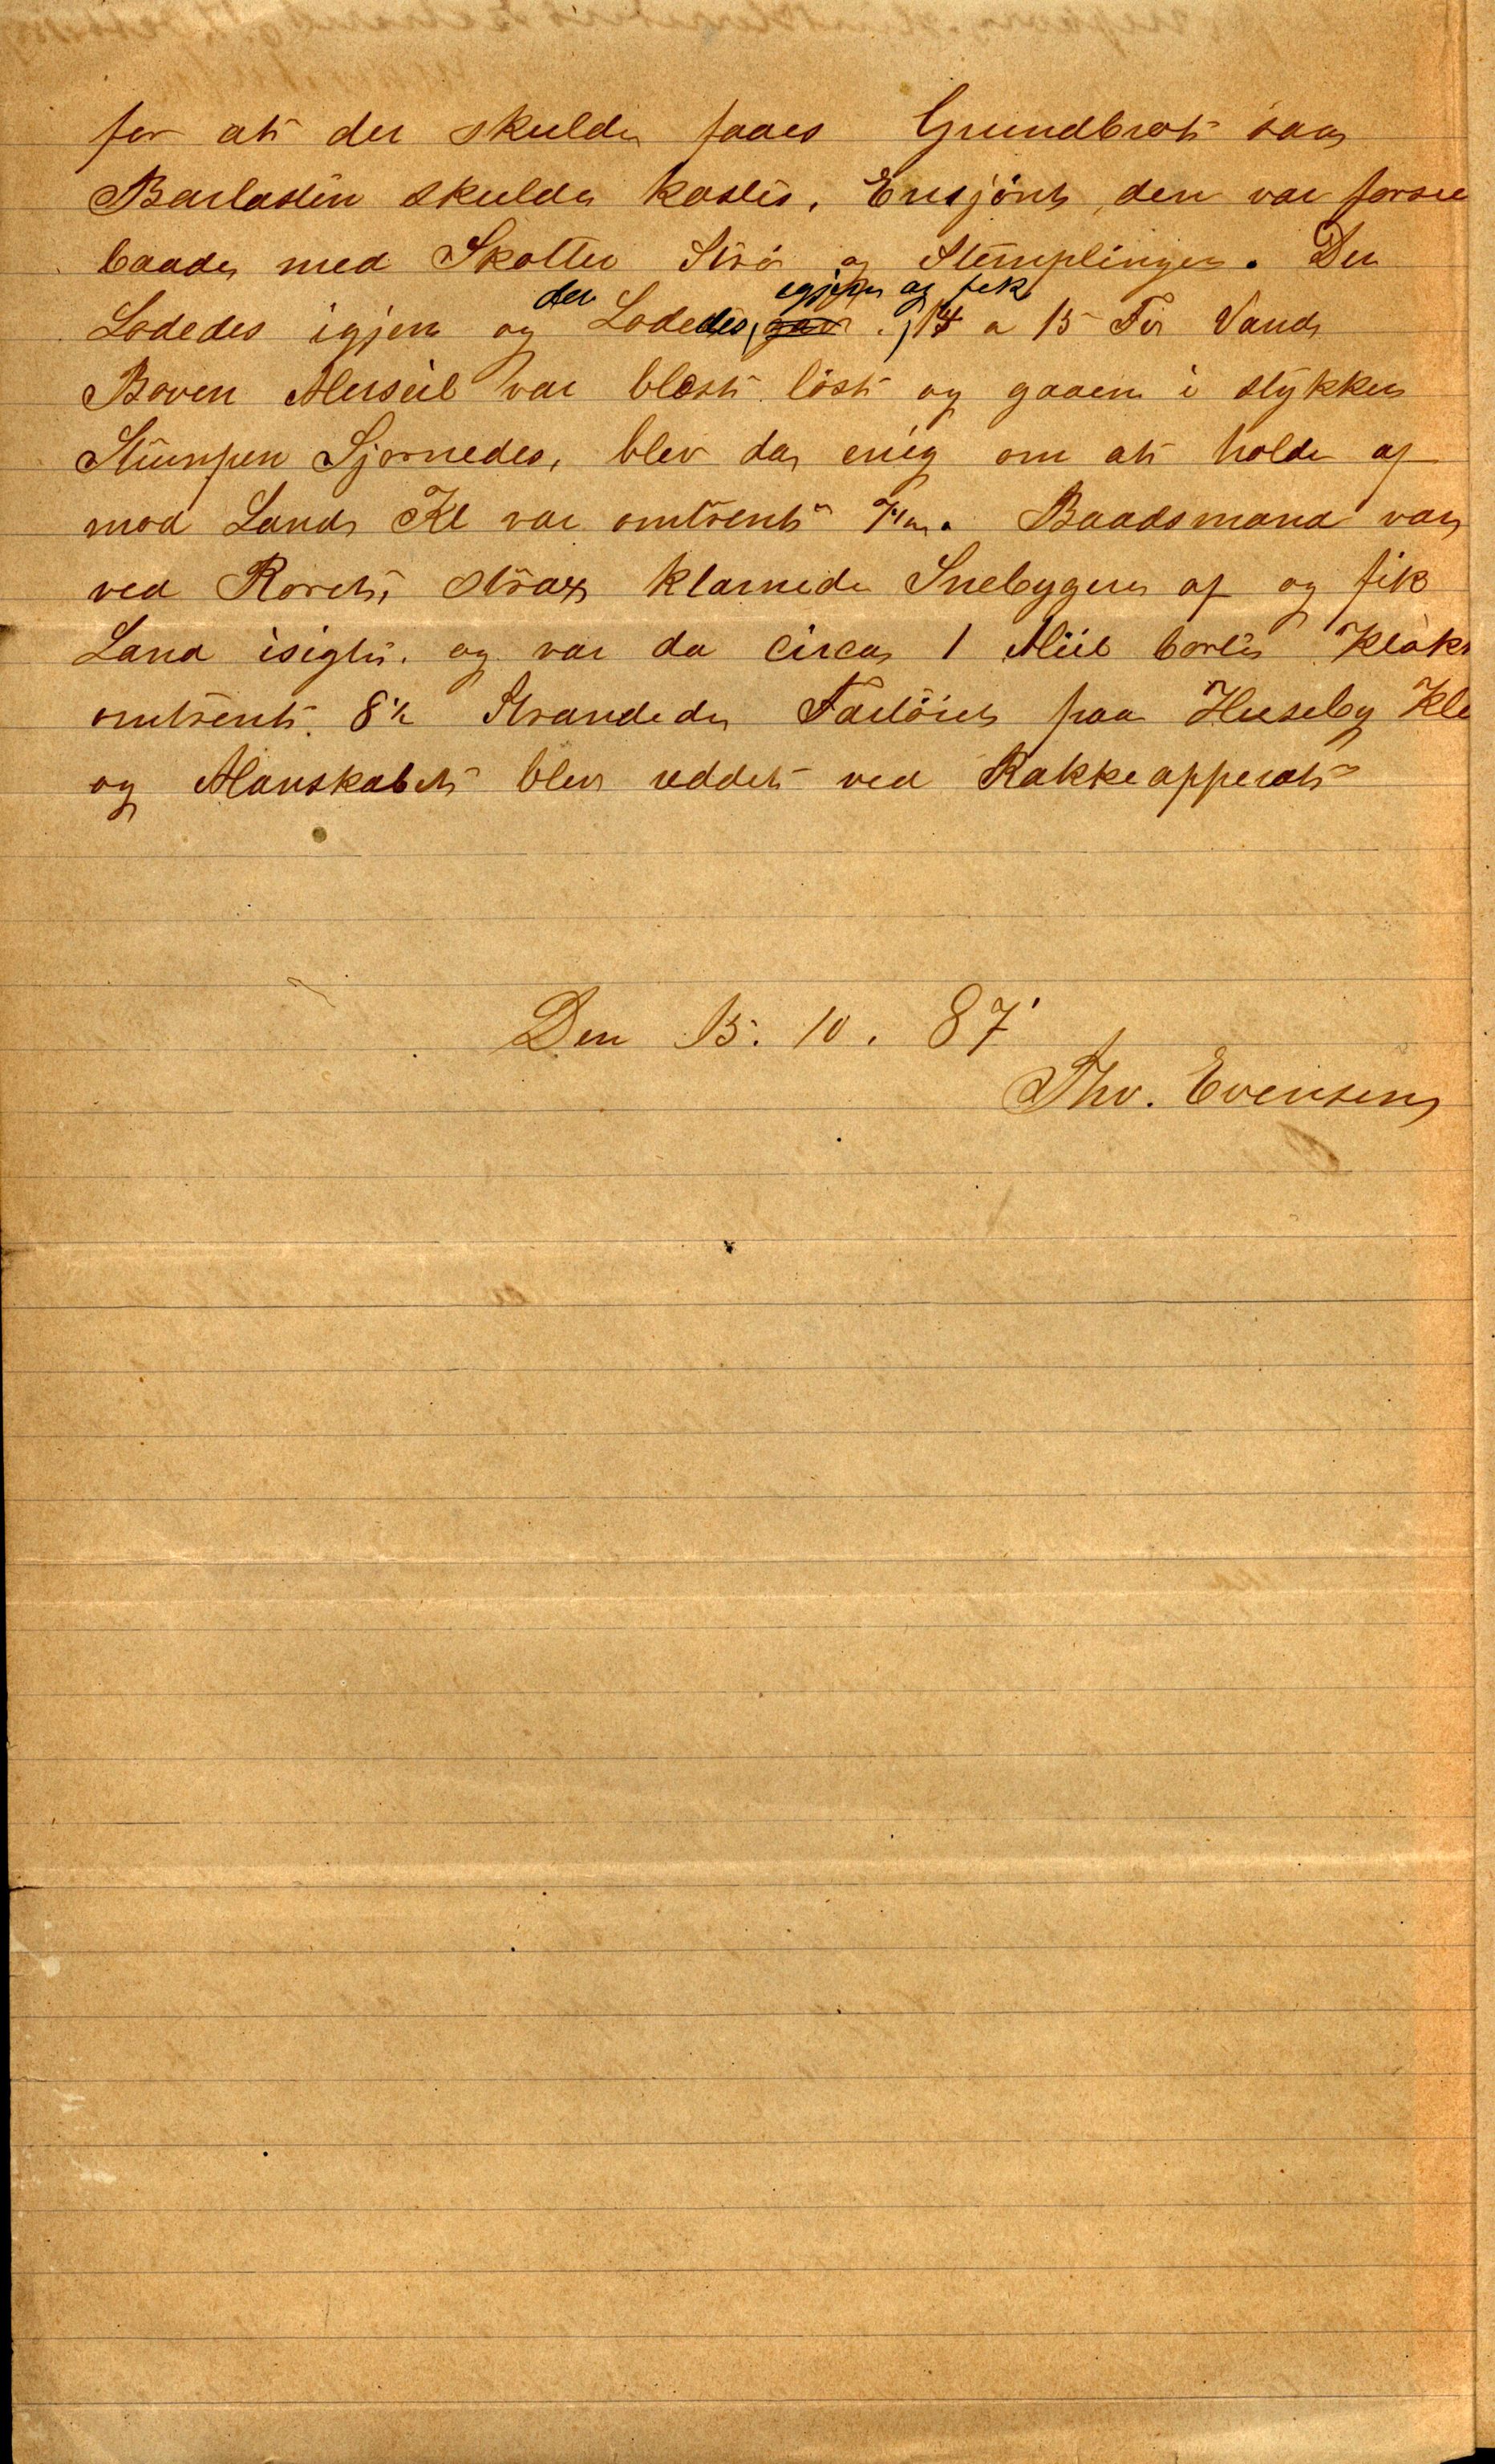 for at der skulde faaes Grundbrot saa
Barlasten skulde kastes. Ensjönt den var forsee
baade med Skotter Strö og Stemplinger. Der
Lodedes igjen og der Lodedes igjen og fik 14 a 15 Fv Vand
Boven Merseil var blæst löst og gaaen i stykker
Stumpen Sjornedes, blev da enig om at holde af
mod Land Kl var omtrent Baadsmand var
ved Roret, strax klarnede Snebygen af og fik
Land isigte. og var da circa 1 Miil borte Klok
omtrent 8½ Strandede Fartöiet paa Huseby Kle
og Manskabet blev reddet ved Rakkeapperat
Den 15. 10. 87
Thv. Evensen